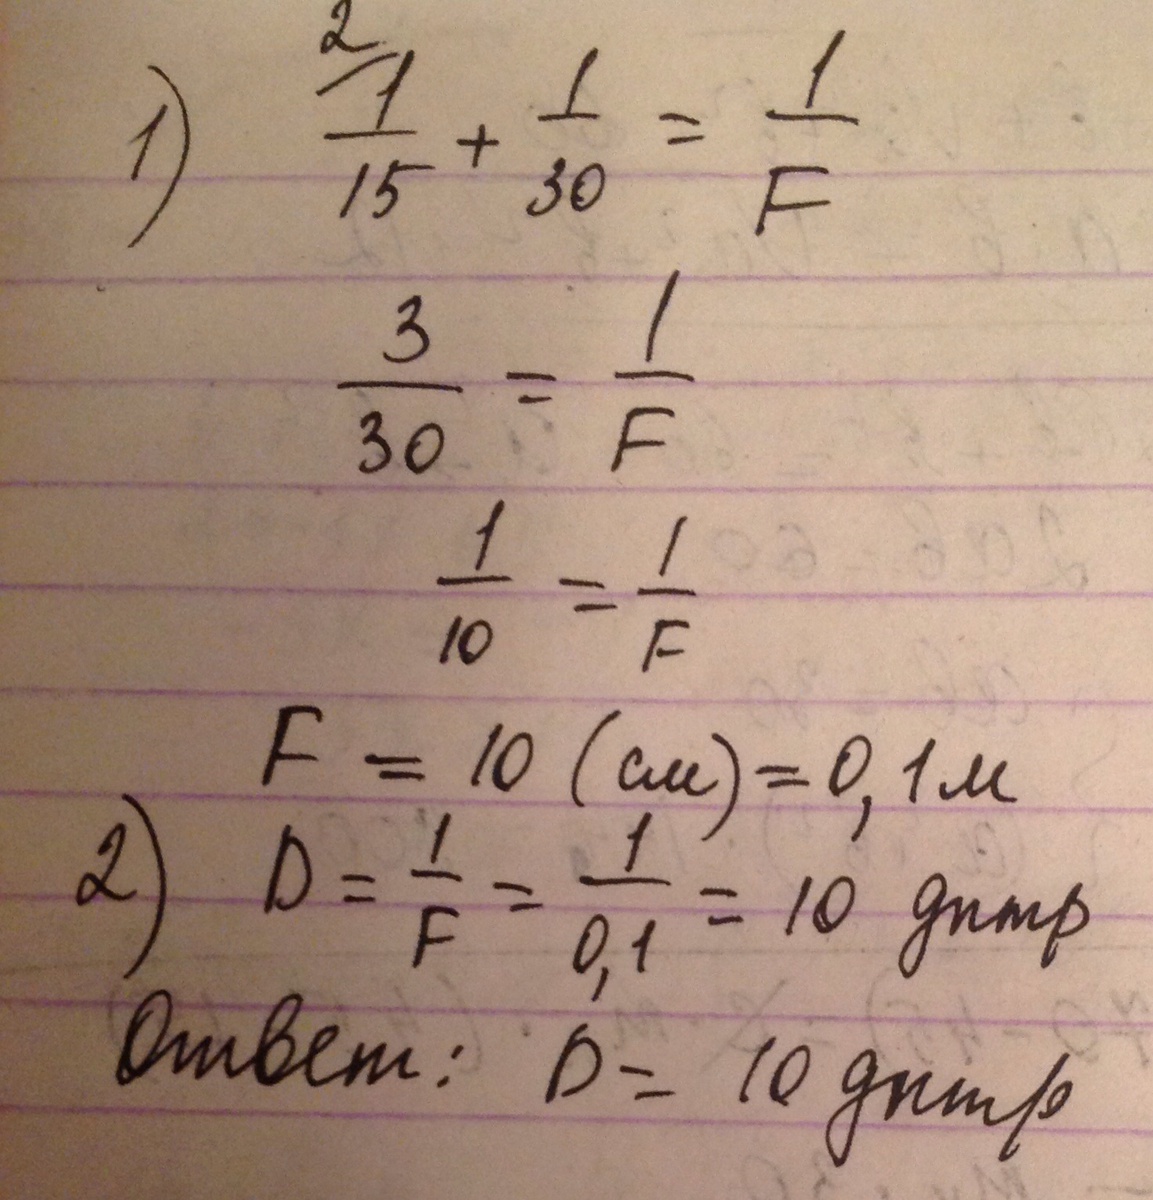 1) 2/ 1/15 + 1/30 = 1/F
3/30 = 1/F
1/10 = 1/F
F = 10 (см) = 0,1м
2) D = 1/F = 1/0,1 = 10 дптр
Ответ: D = 10 дптр